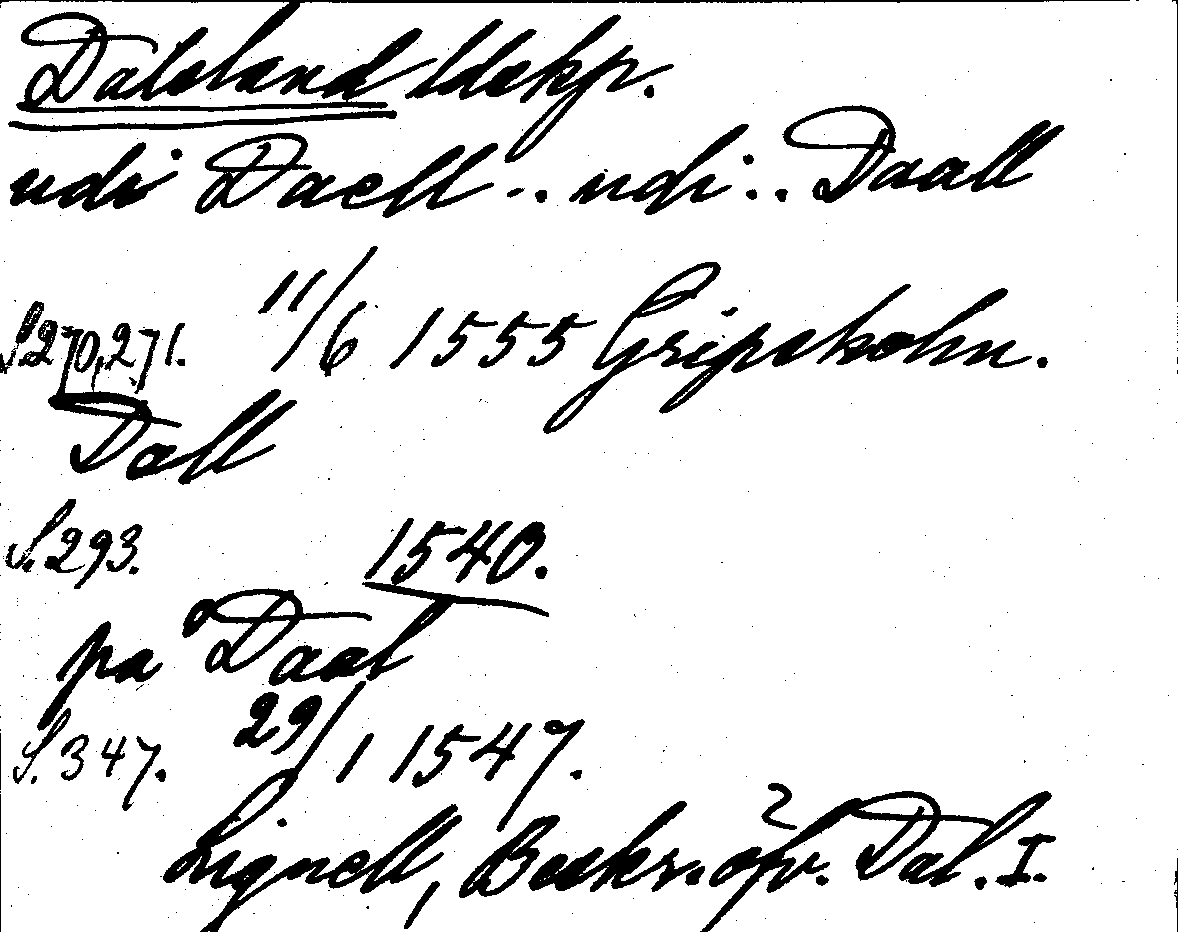 Dalsland ldskp.
udi Daell .. udi .. Daall
S. 270, 271. 11/6 1555 Gripsholm.
Dall
S. 293. 1540.
på Daal
S. 347. 29/1 1547.
Lignell, Beskr. öfv. Dal. I.